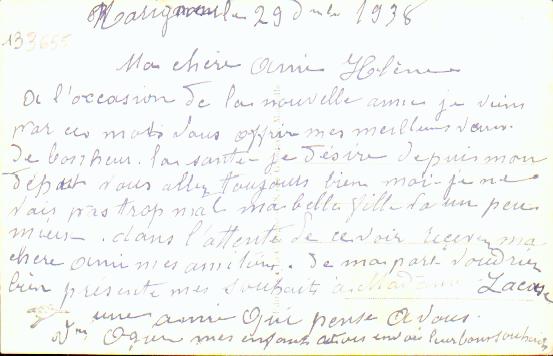 le 29 1938
133655
Ma chère amie Hélène
A l'occasion de la nouvelle année je viens
par ces mots vous offrir mes meilleurs vœux
de bonheur. la santé je désire depuis mon
départ vous allez toujours bien moi je ne
vais pas trop mal ma belle fille va un peu
mieux. dans l'attente de ce voir recevez ma
chère amie mes amitiés. De ma part voudriez
bien présenté mes souhaits à Madame Lacaze
une amie qui pense a vous.
mes enfants vous envoi leur bons souhaits